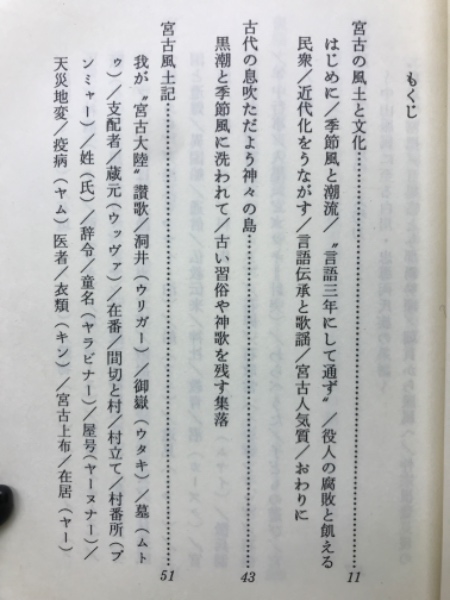 もくじ
宮古の風土と文化……………………………………11
はじめに／季節風と潮流／〝言語三年にして通ず〟／役人の腐敗と飢える
民衆／近代化をうながす／言語伝承と歌謡／宮古人気質／おわりに
古代の息吹ただよう神々の島……………………………………43
黒潮と季節風に洗われて／古い習俗や神歌を残す集落
宮古風土記……………………………………51
我が〝宮古大陸〟讃歌／洞井（ウリガー）／御嶽（ウタキ）／墓（ムト
ゥ）／支配者／蔵元（ウッヴァ）／在番／間切と村／村立て／村番所（ブ
ンミャー）／姓（氏）／辞令／童名（ヤラビナー）／屋号（ヤーヌナー）／
天災地変／疫病（ヤム）医者／衣類（キン）／宮古上布／在居（ヤー）